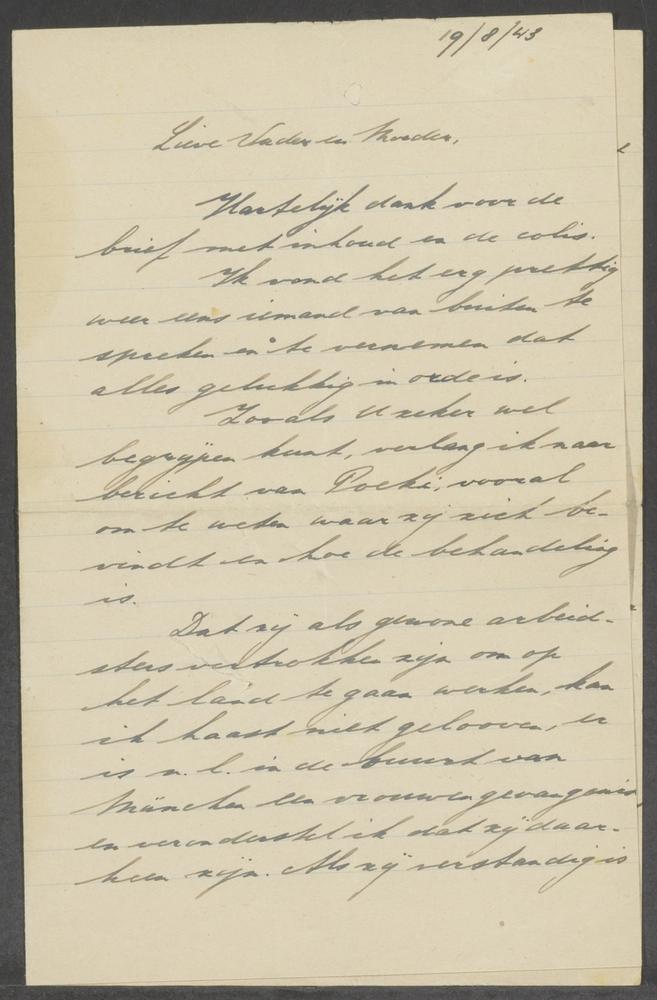 19/8/43
Lieve Vader en Moeder,
Hartelijk dank voor de
brief met inhoud en de colis.
Ik vond het erg prettig
weer eens iemand van buiten te
spreken en te vernemen dat
alles gelukkig in orde is.
Zooals U zeker wel
begrijpen kunt, verlang ik naar
bericht van Poeki, vooral
om te weten waar zij zich be-
vindt en hoe de behandeling
is.
Dat zij als gewone arbeid-
sters vertrokken zijn om op
het land te gaan werken, kan
ik haast niet gelooven, er
is n.l. in de buurt van
München een vrouwengevangenis,
en veronderstel ik dat zij daar-
heen zijn. Als zij verstandig is